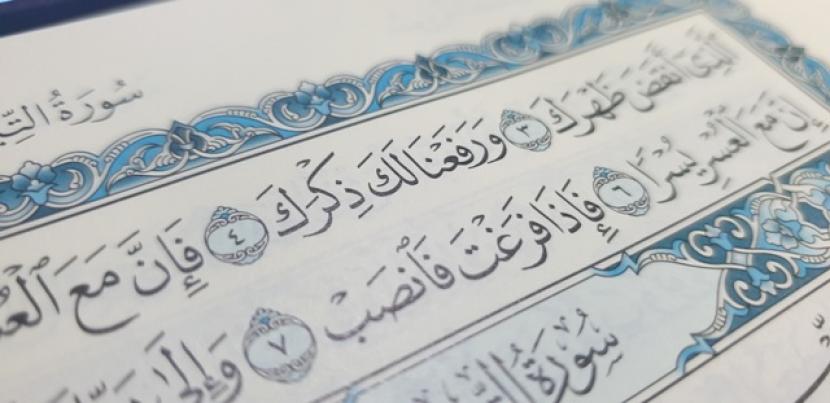 سُورَةُ
ٱلَّذِيٓ أَنقَضَ ظَهْرَكَ ٣ وَرَفَعْنَا لَكَ ذِكْرَكَ ٤ فَإِنَّ مَعَ
إِنَّ مَعَ ٱلْعُسْرِ يُسْرًا ٦ فَإِذَا فَرَغْتَ فَٱنصَبْ ٧ وَإِلَىٰ
سُورَةُ